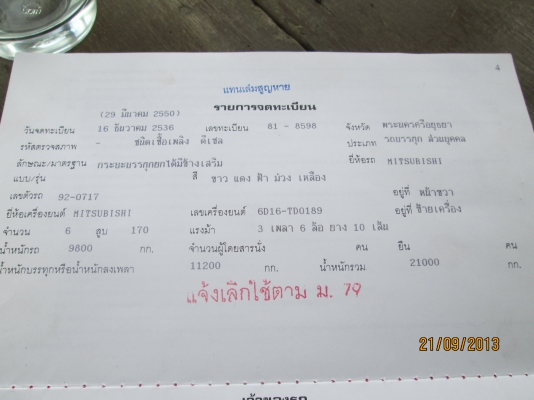 4
แทนเล่มสูญหาย
รายการจดทะเบียน
(29 มีนาคม 2550)
วันจดทะเบียน 16 ธันวาคม 2536 เลขทะเบียน 81 - 8598 จังหวัด พระนครศรีอยุธยา
รหัสตรวจสภาพ - ชนิดเชื้อเพลิง ดีเซล ประเภท รถบรรทุก ส่วนบุคคล
ลักษณะ/มาตรฐาน กระบะบรรทุกยกได้มีข้างเสริม ยี่ห้อรถ MITSUBISHI
แบบ/รุ่น สี ขาว แดง ฟ้า ม่วง เหลือง
เลขตัวรถ 92-0717 อยู่ที่ หน้าขวา
ยี่ห้อเครื่องยนต์ MITSUBISHI เลขเครื่องยนต์ 6D16-TD0189 อยู่ที่ ซ้ายเครื่อง
จำนวน 6 สูบ 170 แรงม้า 3 เพลา 6 ล้อ ยาง 10 เส้น
น้ำหนักรถ 9800 กก. จำนวนผู้โดยสารนั่ง คน ยืน คน
น้ำหนักบรรทุกหรือน้ำหนักลงเพลา 11200 กก. น้ำหนักรวม 21000 กก.
แจ้งเลิกใช้ตาม ม. 79
21/09/2013